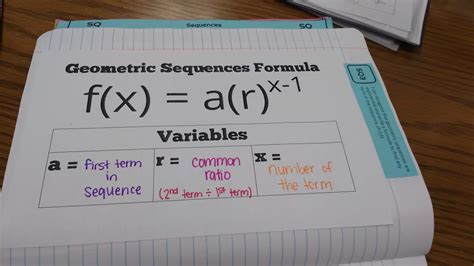 SQ Sequences SQ
Geometric Sequences Formula
f(x) = a(r)^{x-1}
Variables
a = first term in Sequence
r = common ratio (2nd term ÷ 1st term)
x = number of the term
SQ3